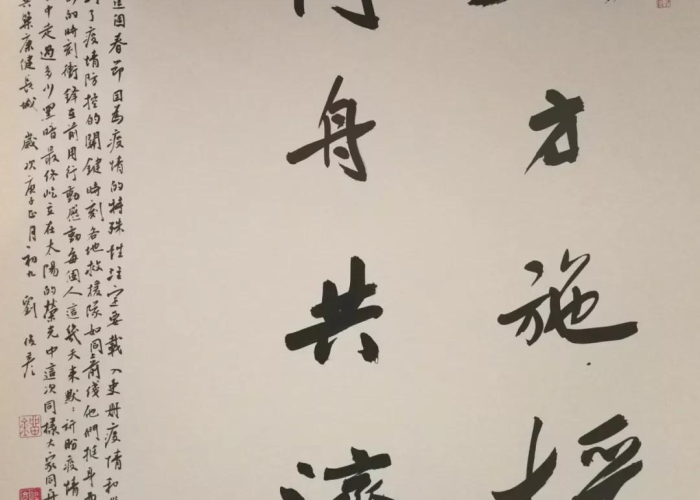 方施援
同舟共濟
這個春節因為疫情的特殊性註定要載入史冊疫情和
到了疫情防控的關鍵時刻各地救援隊如同前綫他們挺身而
的時刻衝鋒在前用行動感動每個人這幾天來默：祈盼疫情
中走過多少黑暗最終屹立在太陽的榮光中這次同樣大家同舟
共築康健長城 歲次庚子正月初九 劉